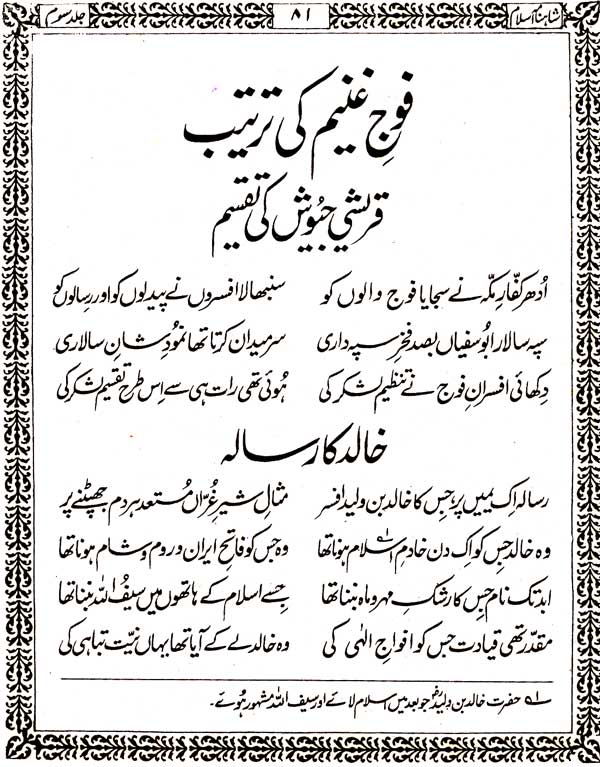 شاہنامہ اسلام ۸۱ جلد سوم
فوجِ غنیم کی ترتیب
قریشی جیوش کی تقسیم
اُدھر کفّارِ مکّہ نے سجایا فوج والوں کو سنبھالا افسروں نے پیدلوں کو اور رسالوں کو
سپہ سالار ابُوسفیاں بصد فخرِ سپہ داری سرِ میدان کرتا تھا نمُودِ شانِ سالاری
دکھائی افسرانِ فوج نے تنظیم لشکر کی ہُوئی تھی رات ہی سے اِس طرح تقسیم لشکر کی
خالد کا رسالہ
رسالہ اِک یمیں پر، جس کا خالد بن ولید افسر مثالِ شیرِ غُرّاں مُستعد ہر دم جھپٹنے پر
وہ خالد جس کو اِک دن خادمِ اسلام ہونا تھا وہ جس کو فاتحِ ایران و روم و شام ہونا تھا
ابد تک نام جس کا رشکِ مہر و ماہ بننا تھا جسے اسلام کے ہاتھوں میں سیفُ اللہ بننا تھا
مقدّر تھی قیادت جس کو افواجِ الٰہی کی وہ خالد لے کے آیا تھا یہاں نیّت تباہی کی
۱؎ حضرت خالد بن ولیدؓ جو بعد میں اسلام لائے اور سیف اللہ مشہور ہُوئے۔